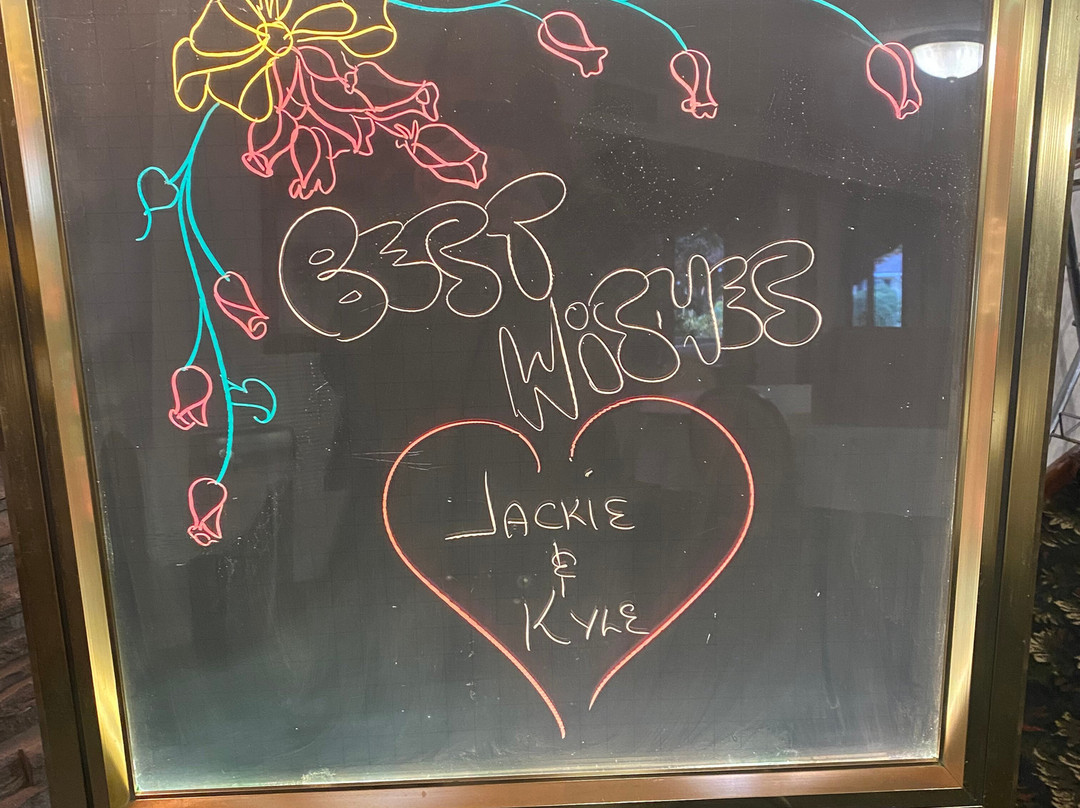 BEST
WiSHES
JACKiE
&
KYLE